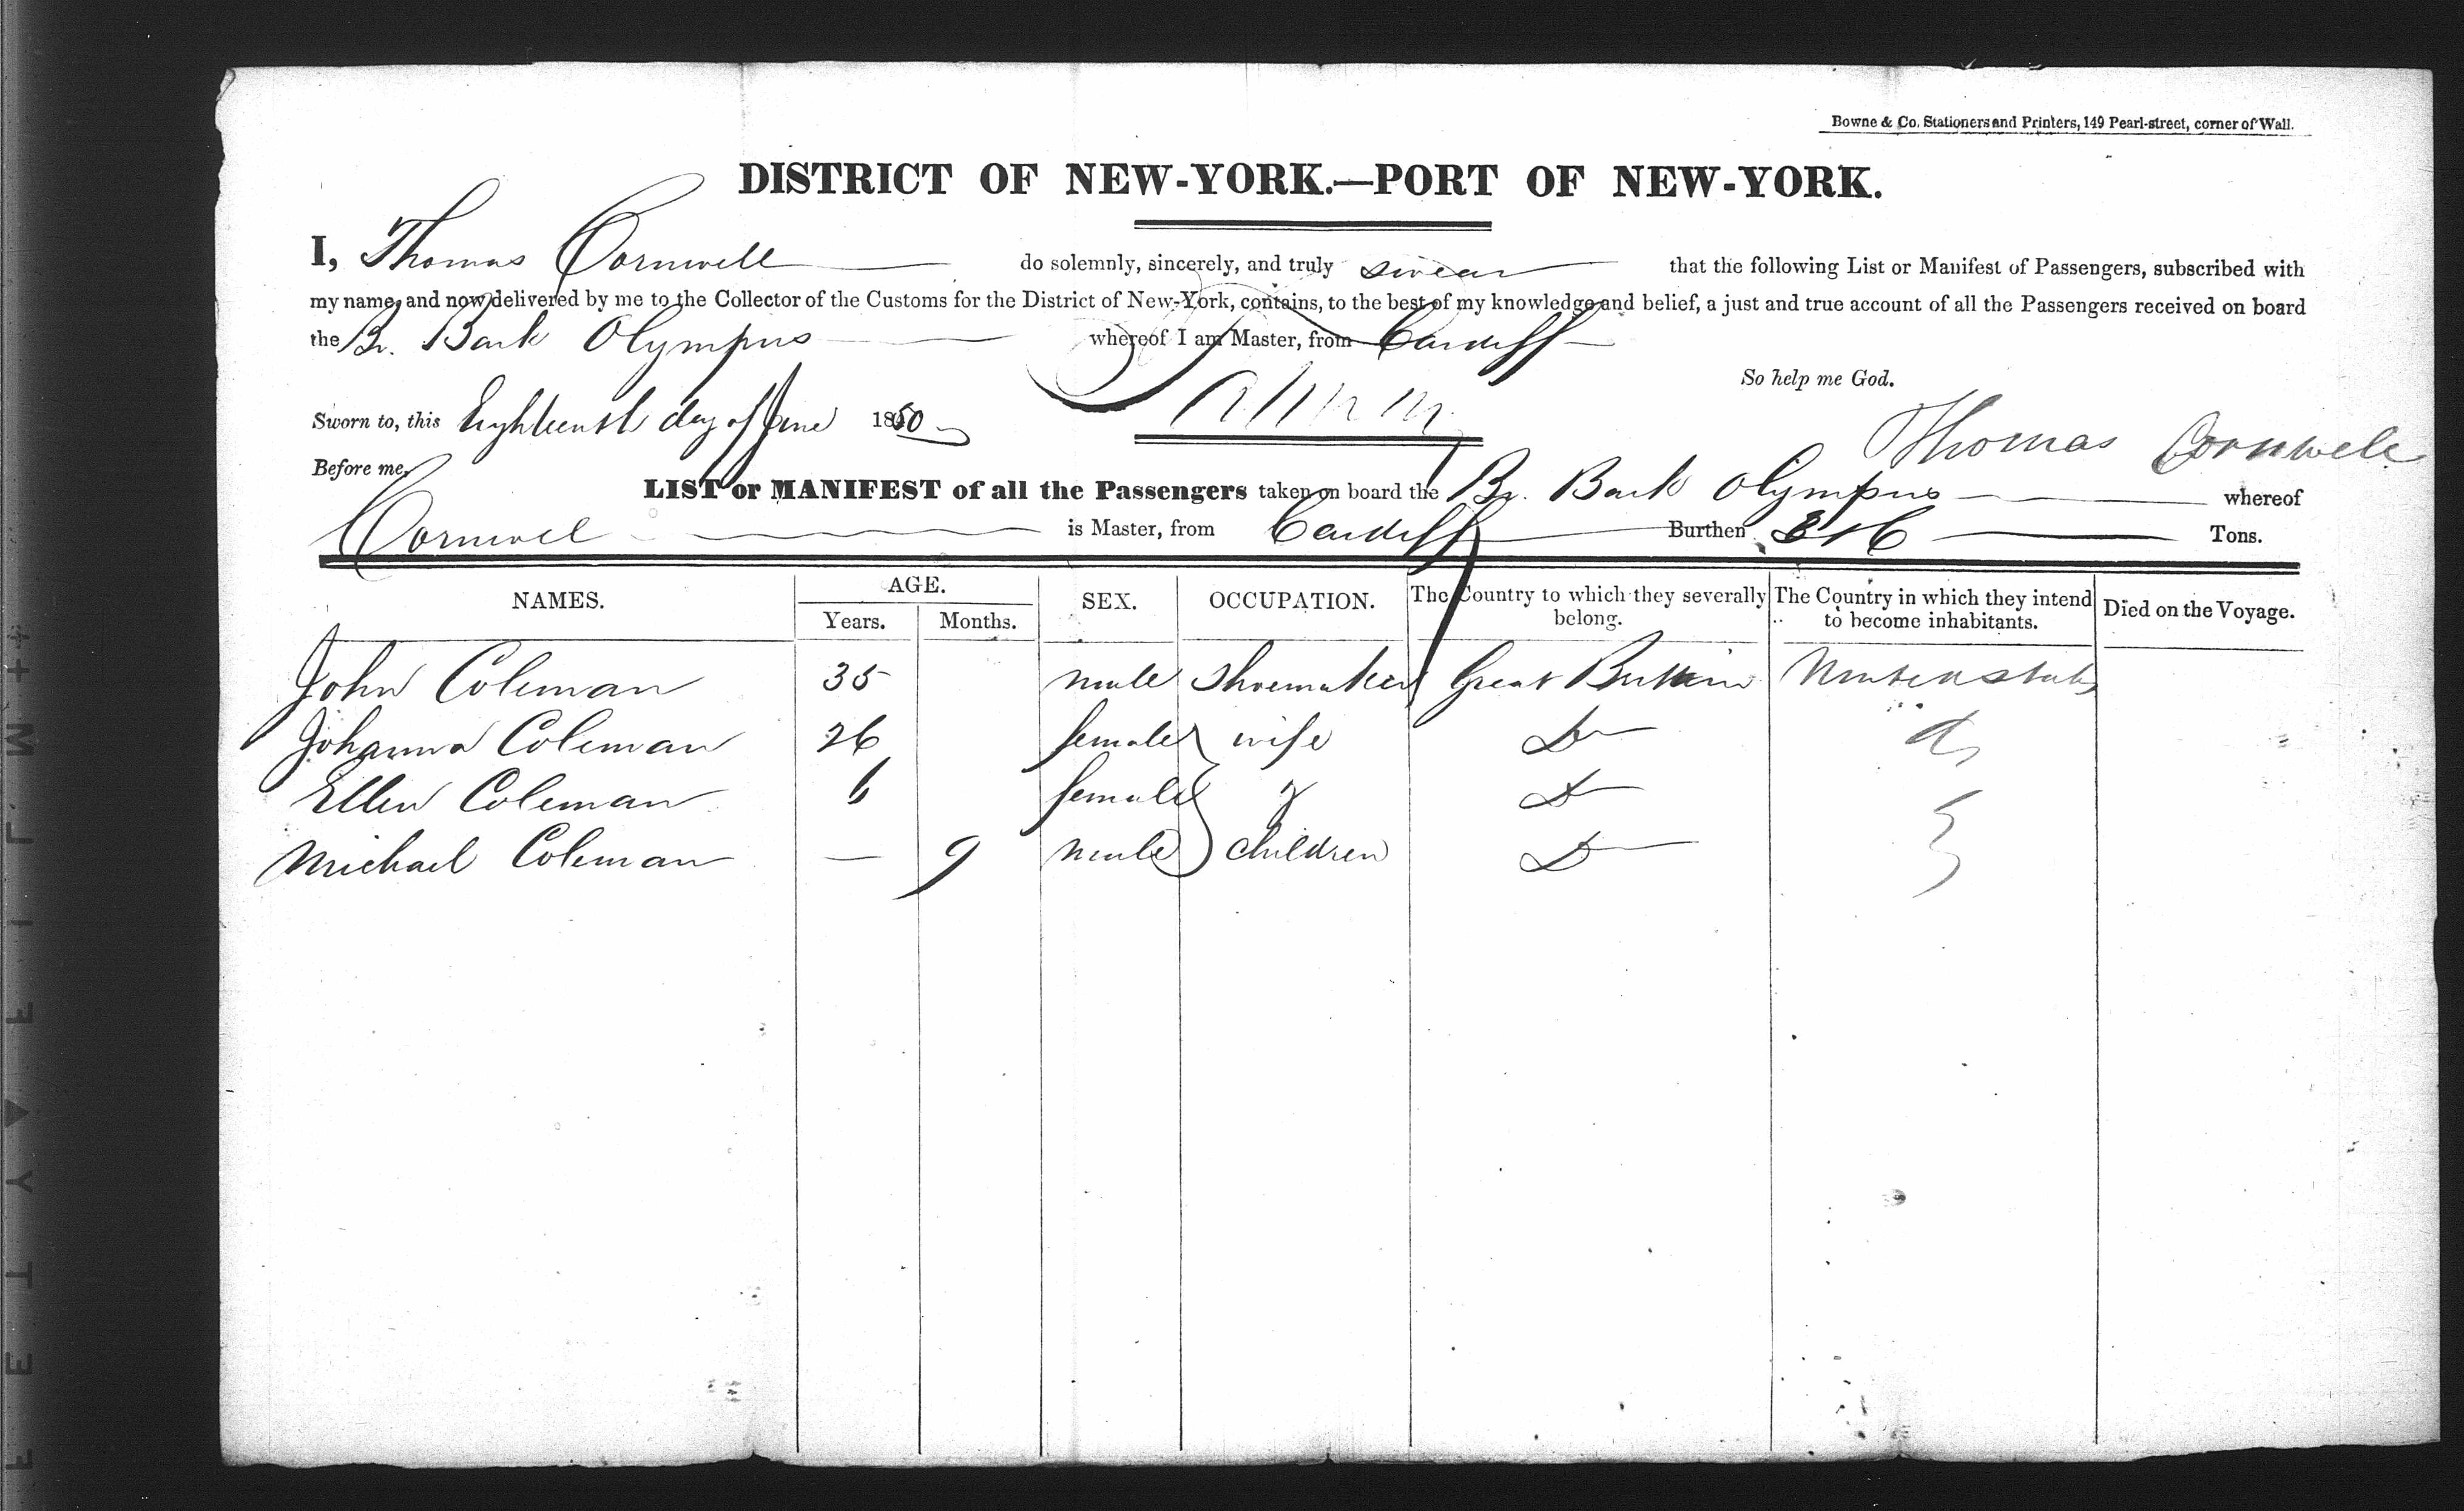 Bowne & Co. Stationers and Printers, 149 Pearl-street, corner of Wall.
DISTRICT OF NEW-YORK.—PORT OF NEW-YORK.
I, Thomas Cornwell do solemnly, sincerely, and truly swear that the following List or Manifest of Passengers, subscribed with
my name, and now delivered by me to the Collector of the Customs for the District of New-York, contains, to the best of my knowledge and belief, a just and true account of all the Passengers received on board
the Br. Bark Olympus whereof I am Master, from Cardiff
So help me God.
Sworn to, this Eighteenth day of June 1850
Thomas Cornwell
Before me,
LIST or MANIFEST of all the Passengers taken on board the Br. Bark Olympus whereof
Cornwel is Master, from Cardiff Burthen 316 Tons.
NAMES. AGE. SEX. OCCUPATION. The Country to which they severally belong. The Country in which they intend to become inhabitants. Died on the Voyage.
Years. Months.
John Coleman 35 male Shoemaker Great Brittain
Johanna Coleman 26 female wife Do
Ellen Coleman 6 female & Do
Michael Coleman — 9 male children Do